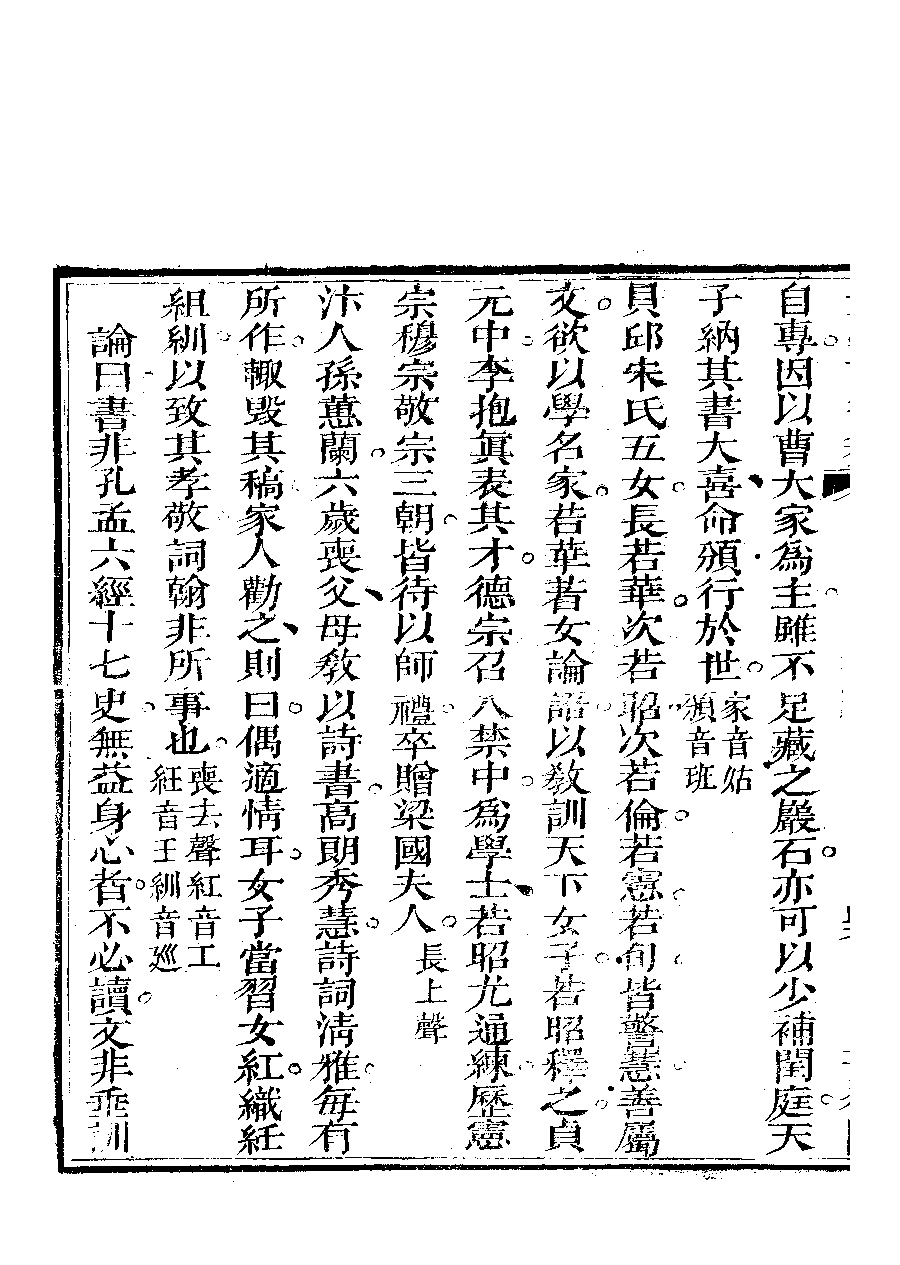 自專因以曹大家為主雖不足藏之巖石亦可以少補閨庭天
子納其書大喜命頒行於世家音姑頒音班
貝邱宋氏五女長若華次若昭次若倫若憲若旬皆警慧善屬
文欲以學名家若華著女論語以敎訓天下女子若昭釋之貞
元中李抱眞表其才德宗召入禁中為學士若昭尤通練歷憲
宗穆宗敬宗三朝皆待以師禮卒贈梁國夫人長上聲
汴人孫蕙蘭六歲喪父母敎以詩書高朗秀慧詩詞淸雅每有
所作輙毀其稿家人勸之則曰偶適情耳女子當習女紅織紝
組紃以致其孝敬詞翰非所事也喪去聲紅音工紝音壬紃音廵
論曰書非孔孟六經十七史無益身心者不必讀文非垂訓